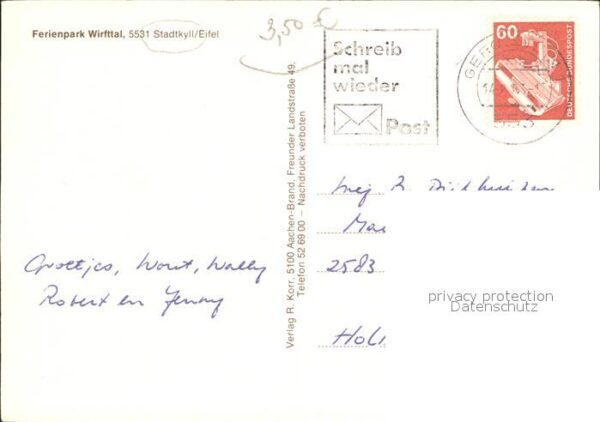 Ferienpark Wirfttal, 5531 Stadtkyll/Eifel
3,50 €
Schreib
mal
wieder
Post
60
DEUTSCHE BUNDESPOST
Verlag R. Korr, 5100 Aachen-Brand, Freunder Landstraße 49,
Telefon 52 69 00 – Nachdruck verboten
Groetjes, Wout, Wally
Robert en Jenny
2583
privacy protection
Datenschutz